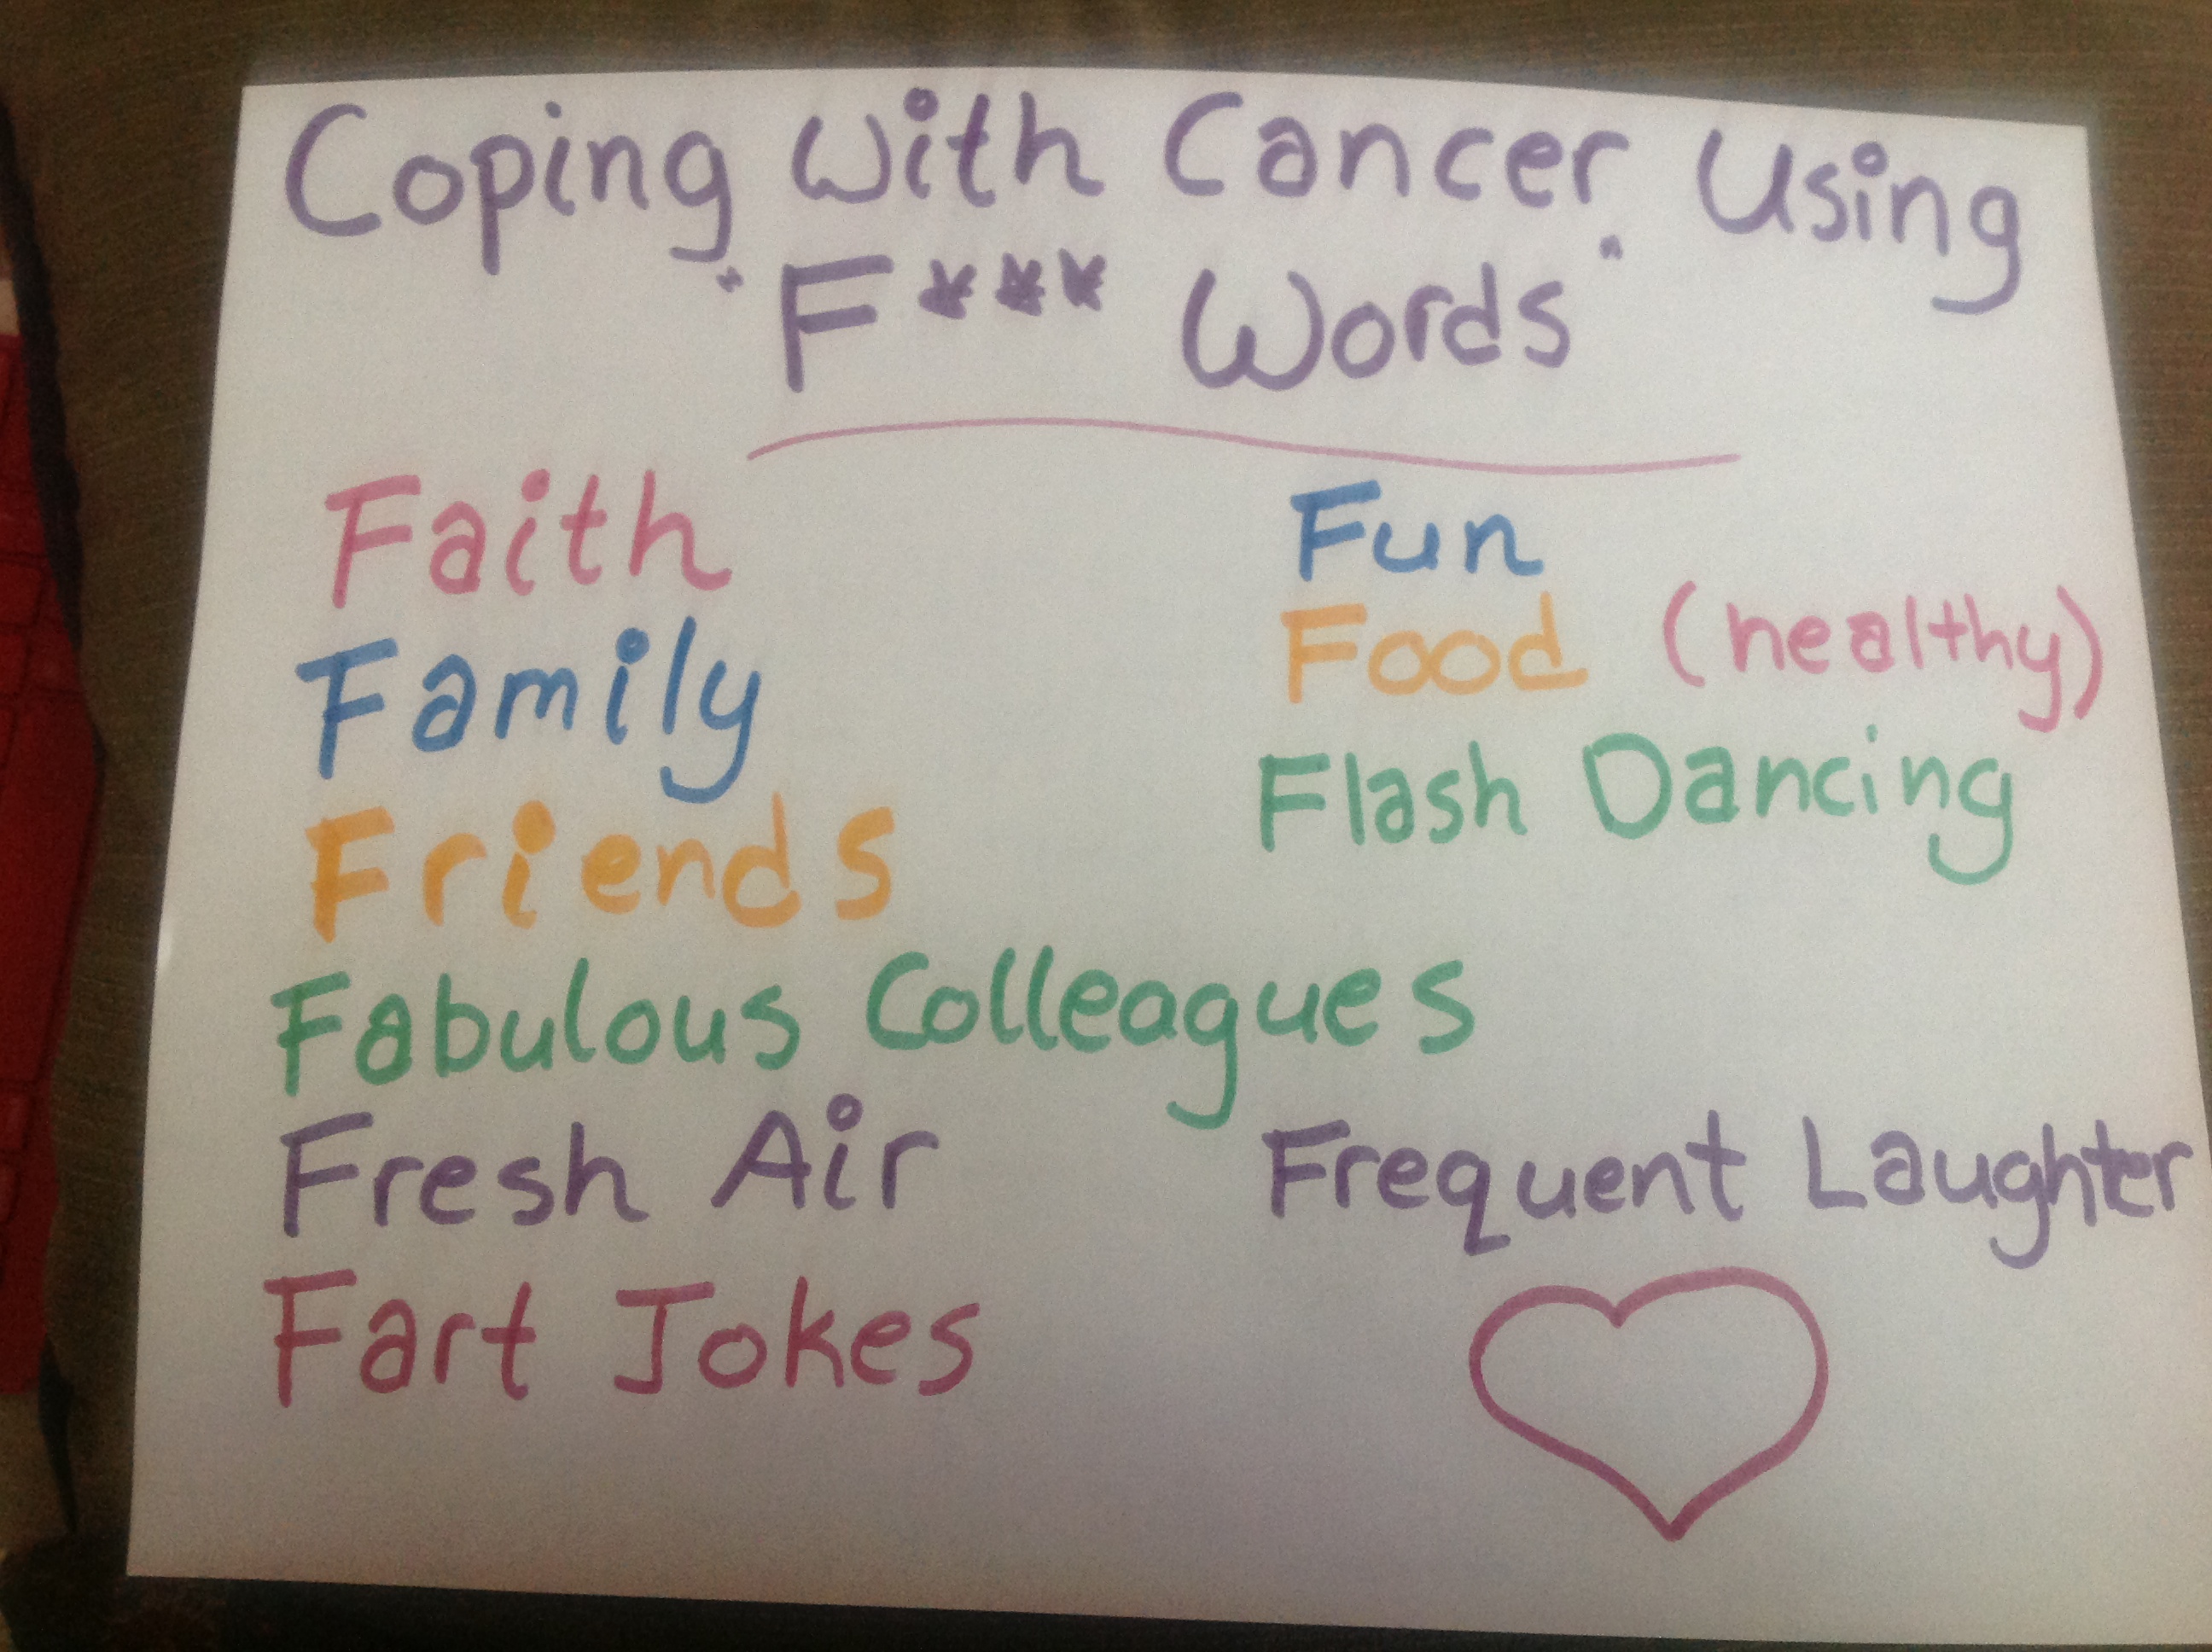 Coping With Cancer Using
"F*** Words"
Faith
Family
Friends
Fabulous Colleagues
Fresh Air
Fart Jokes
Fun
Food (healthy)
Flash Dancing
Frequent Laughter